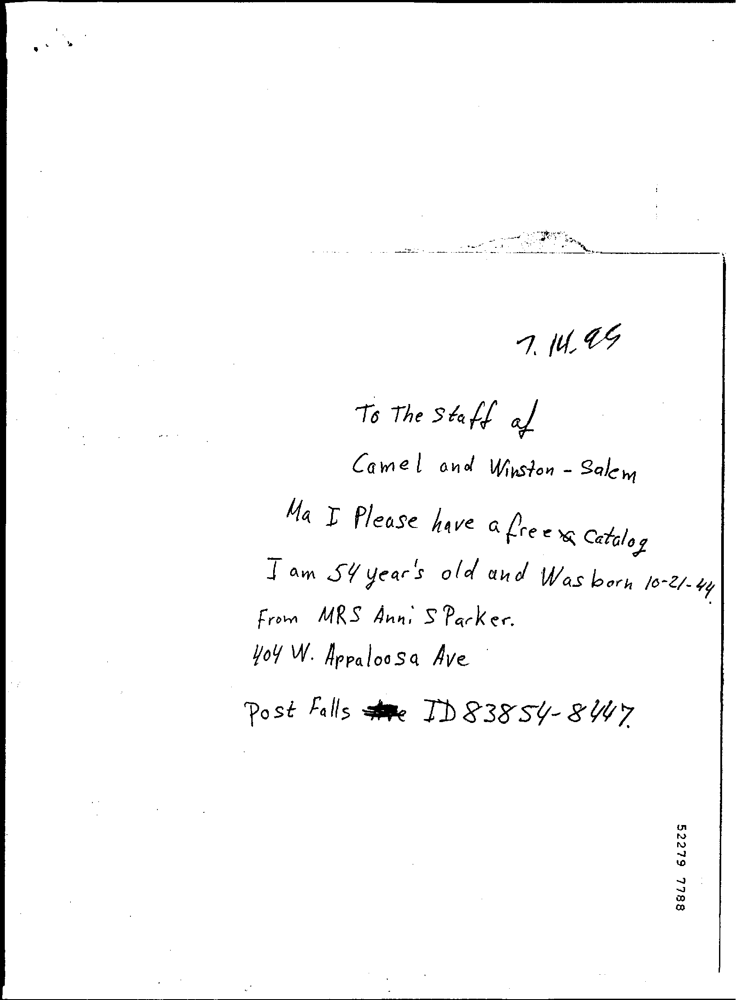 7.14.99
To The Staff of
Camel and Winston - Salem
Ma I Please have a free Catalog
I am 54 year's old and Was born 10-21-44.
From MRS Anni S Parker.
404 W. Appaloosa Ave
Post Falls ID 83854-8447.
52279 7788